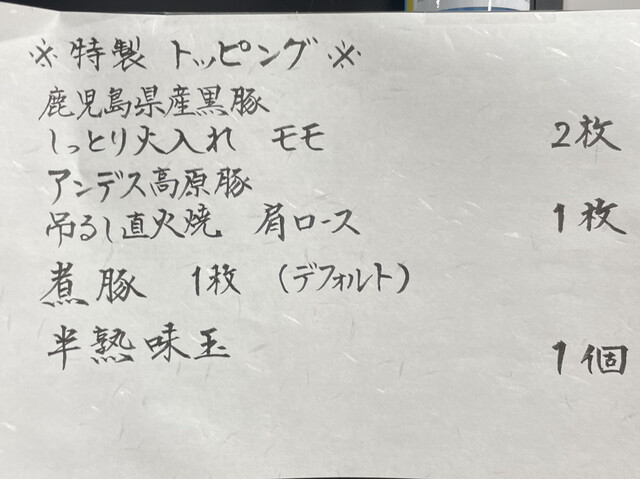 ※特製 トッピング※
鹿児島県産黒豚
しっとり火入れ モモ 2枚
アンデス高原豚
吊るし直火焼 肩ロース 1枚
煮豚 1枚 (デフォルト)
半熟味玉 1個